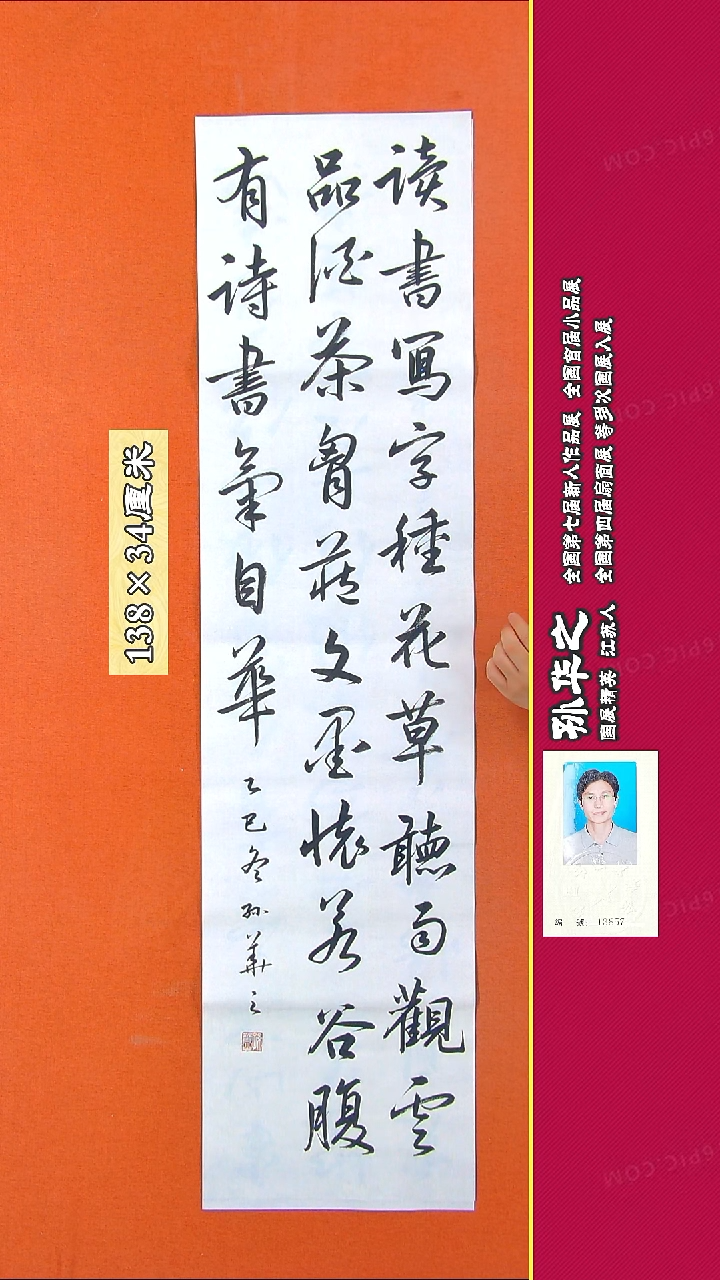 读書寫字種花草聽雨觀雲
品酒茶胷藏文墨懷若谷腹
有詩書氣自華
乙巳冬孙華之
138×34厘米
孙华之
国展精英 江苏人
全国第七届新人作品展 全国首届小品展
全国第四届扇面展 等多次国展入展
编 号: 13857
6PIC.COM